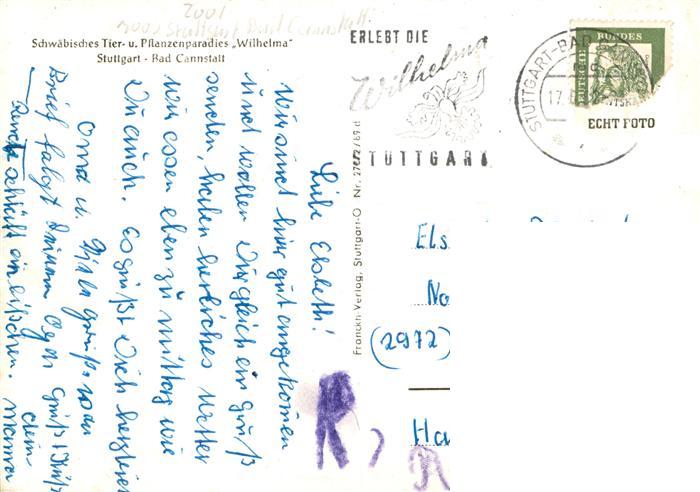 2001
7000 Stuttgart Bad Cannstatt
Schwäbisches Tier- u. Pflanzenparadies „Wilhelma"
Stuttgart - Bad Cannstatt
ERLEBT DIE
Wilhelma
STUTTGART
STUTTGART-BAD
17.
DEUTSCHE BUNDES
ECHT FOTO
Franckh-Verlag, Stuttgart-O Nr. 2762/69 d
Liebe Elsbeth!
Wir sind hier gut angekomen
und wollen Dir gleich ein gruß
senden, haben herliches Wetter
wir essen eben zu mittag wie
Du auch. Es grüßt Dich herzlich
Oma u.
Brief folgt
schläft ein bißchen. Mama
Els
No
(2972)
Ha
R